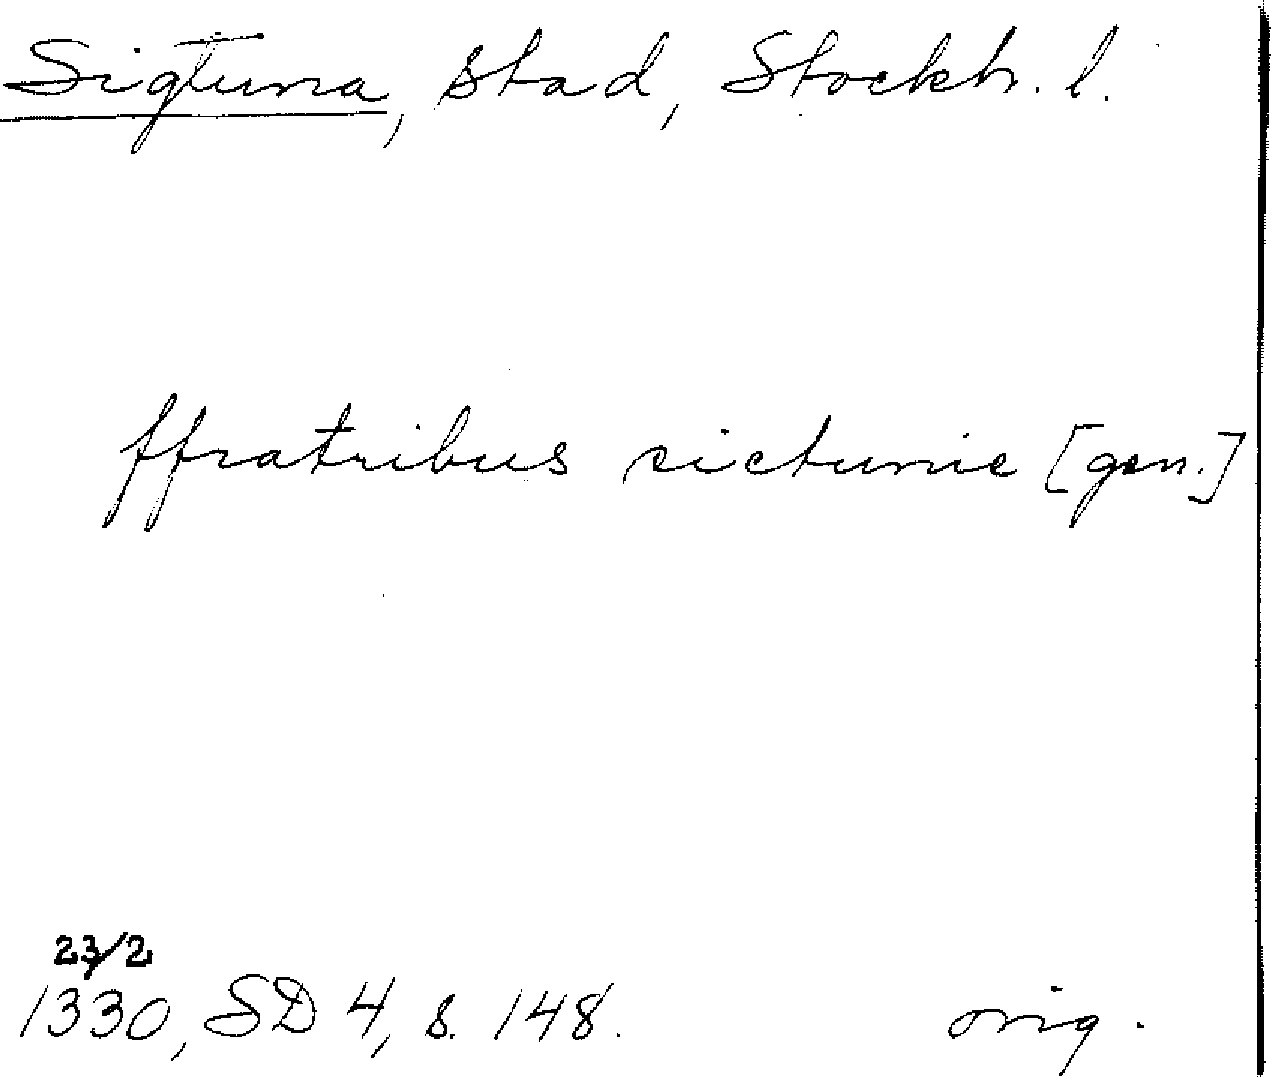 Sigtuna, stad, Stockh. l.
ffratribus sictunie [gen.]
23/2
1330, SD 4, s. 148. orig.